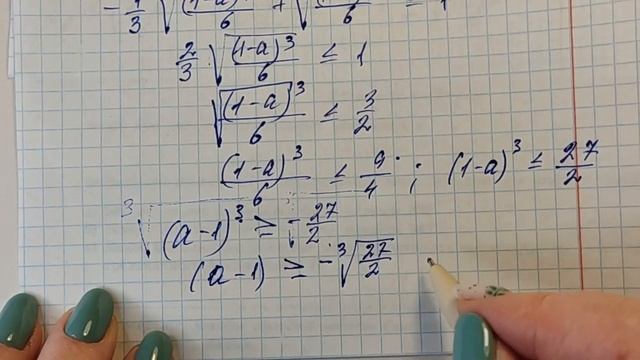 - 1/3 √((1-a)³/6) + √((1-a)³/6) ≤ 1
2/3 √((1-a)³/6) ≤ 1
√((1-a)³/6) ≤ 3/2
(1-a)³/6 ≤ 9/4 ; (1-a)³ ≤ 27/2
³√ (a-1)³ ≥ - 27/2
(a-1) ≥ - ³√(27/2)